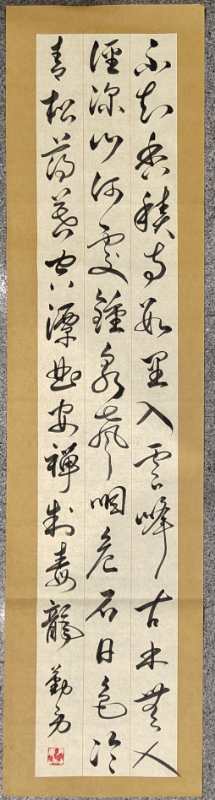 不知香積寺數里入雲峰古木無人
徑深山何處鍾泉聲咽危石日色冷
青松薄暮空潭曲安禪制毒龍 勤